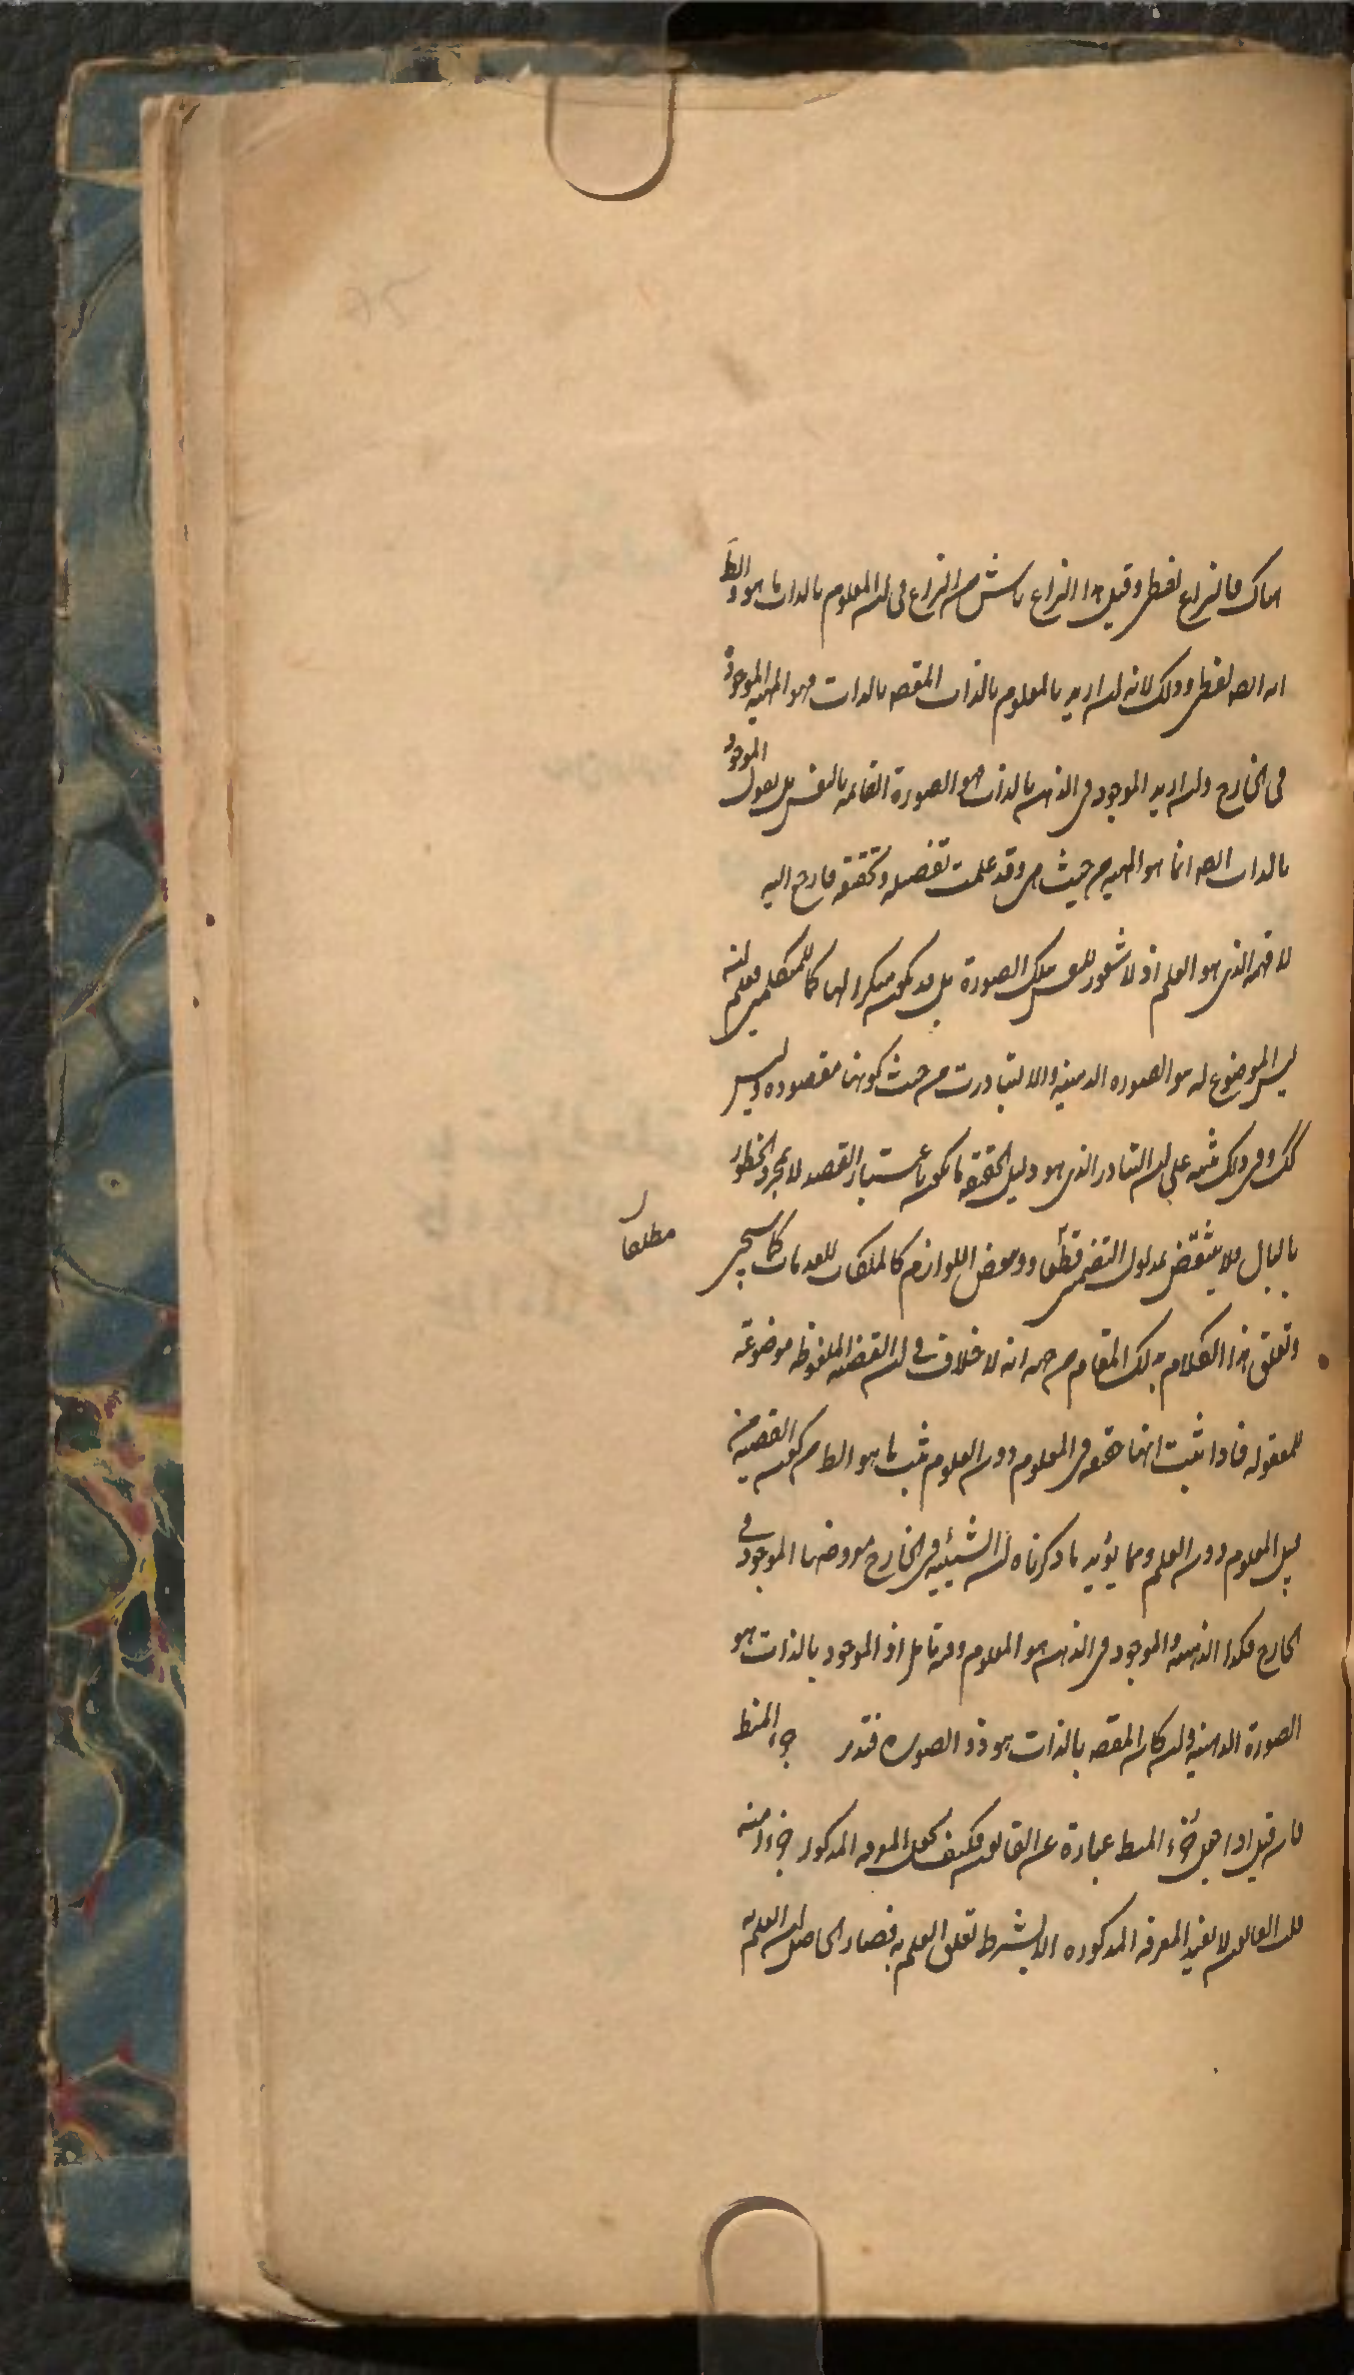 هناك فالنزاع لفظى وقيل هذا النزاع ناش من النزاع فى ان المعلوم بالذات ما هو والظ
انه ايضا لفظى وذلك لانه ان اريد بالمعلوم بالذات المقصود بالذات فهو المهية الموجودة
فى الخارج وان اريد الموجود فى الذهن بالذات فهو الصورة القائمة بالنفس بل نقول الموجود
بالذات ايضا انما هو المهية من حيث هى وقد علمت تفصيله وتحقيقه فارجع اليه
لا فهمه الذى هو العلم اذ لا شعور للنفس بتلك الصورة بل قد يكون منكرا لها كالمتكلمين فعلم انه
ليس الموضوع له هو الصورة الذهنية والا لتبادرت من حيث كونها مقصودة وليس
كك وفى ذلك تنبيه على ان التبادر الذى هو دليل الحقيقة ما يكون باعتبار القصد لا مجرد الخطور
بالبال فلا ينتقض بمدلول التضمن مطلقا وبعض اللوازم كالملكات للعدمات كما سيجئ
مطلقا
وتعلق هذا الكلام بذلك المقام من جهة انه لا خلاف فى ان القضية الملفوظة موضوعة
للمعقولة فاذا ثبت انها حقيقة فى المعلوم دون العلوم ثبت ما هو الظ من كون القضية من
قبيل المعلوم دون العلم ومما يؤيد ما ذكرناه ان الشيئية فى الخارج معروضها الموجود فى
الخارج فكذا الذهنية والموجود فى الذهن هو المعلوم وفيه تامل اذ الموجود بالذات هو
الصورة الذهنية وان كان المقصود بالذات هو ذو الصورة فتدبر جزء المنط
فان قيل اذا جعل جزء المنط عبارة عن القانون فكيف يجعل المعرفة المذكورة جزءا منه
قلت القانون لا يفيد المعرفة المذكورة الا بشرط تعلق العلم به فصار الحاصل ان العلم به